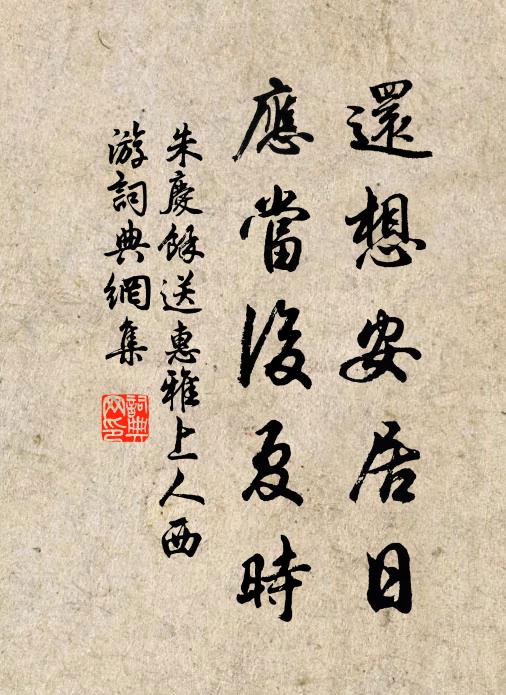 還想安居日
應當後夏時
朱慶餘送惠雅上人西
游詞典網集
詞典
网印